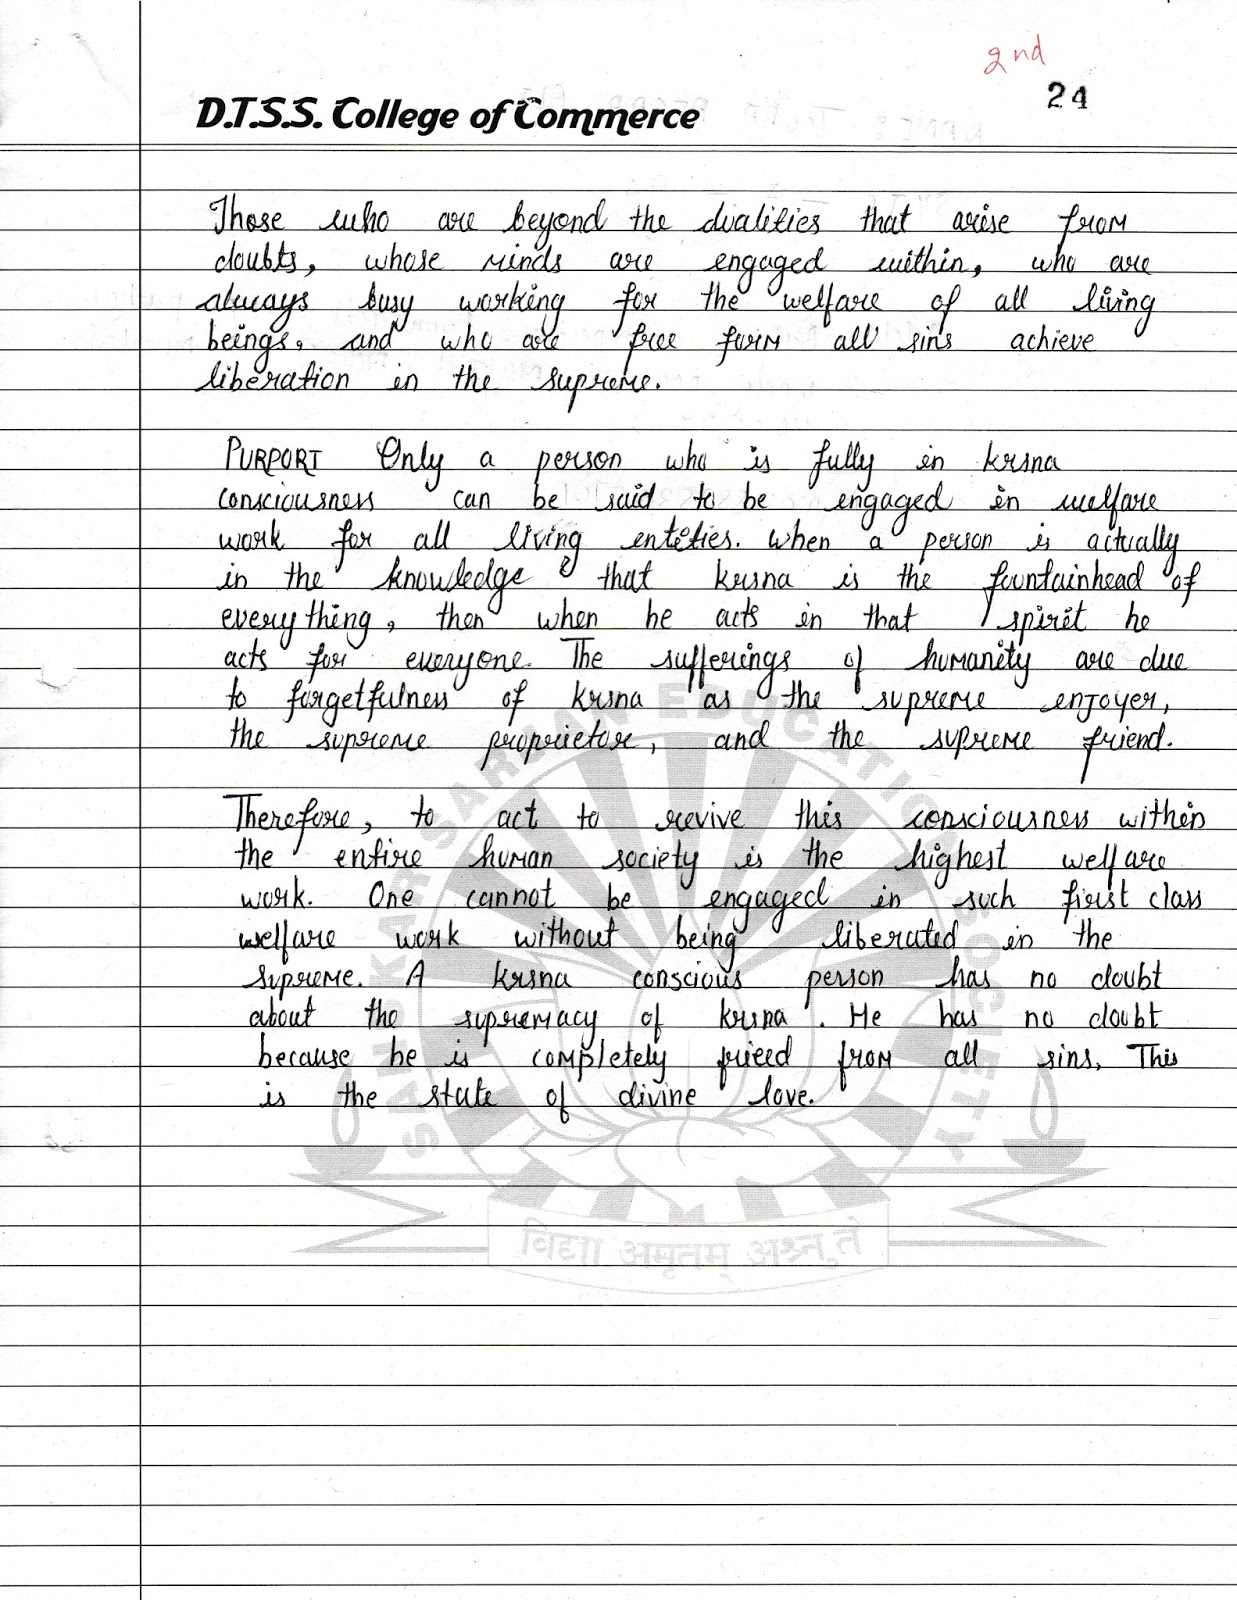 2nd
24
D.T.S.S. College of Commerce
Those who are beyond the dualities that arise from
doubts, whose minds are engaged within, who are
always busy working for the welfare of all living
beings, and who are free form all sins achieve
liberation in the supreme.
PURPORT Only a person who is fully in krsna
consciousness can be said to be engaged in welfare
work for all living enteties. when a person is actually
in the knowledge that krsna is the fountainhead of
everything, then when he acts in that spirit he
acts for everyone. The sufferings of humanity are due
to forgetfulness of krsna as the supreme enjoyer,
the supreme proprietore, and the supreme friend.
Therefore, to act to revive this consciousness within
the entire human society is the highest welfare
work. One cannot be engaged in such first class
welfare work without being liberated in the
supreme. A krsna conscious person has no doubt
about the supremacy of krsna. He has no doubt
because he is completely frieed from all sins, This
is the state of divine love.
SANSKAR SARJAN EDUCATION SOCIETY
विद्या अमृतम् अश्नुते